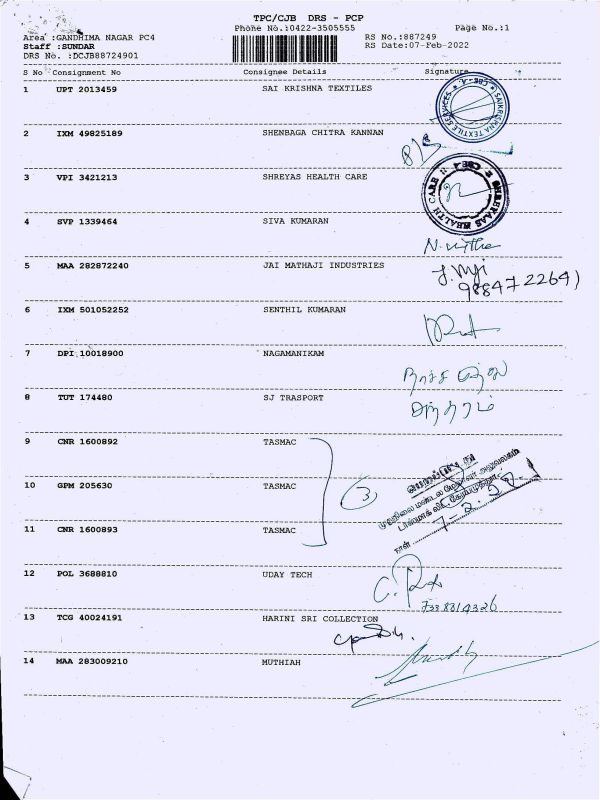 TPC/CJB DRS - PCP
Phone No.:0422-3505555 Page No.:1
Area :GANDHIMA NAGAR PC4 RS No.:887249
Staff :SUNDAR RS Date:07-Feb-2022
DRS No. :DCJB88724901
S No Consignment No Consignee Details Signature
1 UPT 2013459 SAI KRISHNA TEXTILES
2 IXM 49825189 SHENBAGA CHITRA KANNAN
3 VPI 3421213 SHREYAS HEALTH CARE
4 SVP 1339464 SIVA KUMARAN
5 MAA 282872240 JAI MATHAJI INDUSTRIES
6 IXM 501052252 SENTHIL KUMARAN
7 DPI 10018900 NAGAMANIKAM
8 TUT 174480 SJ TRASPORT
9 CNR 1600892 TASMAC
10 GPM 205630 TASMAC
3
11 CNR 1600893 TASMAC
நாள்
12 POL 3688810 UDAY TECH
13 TCG 40024191 HARINI SRI COLLECTION
14 MAA 283009210 MUTHIAH